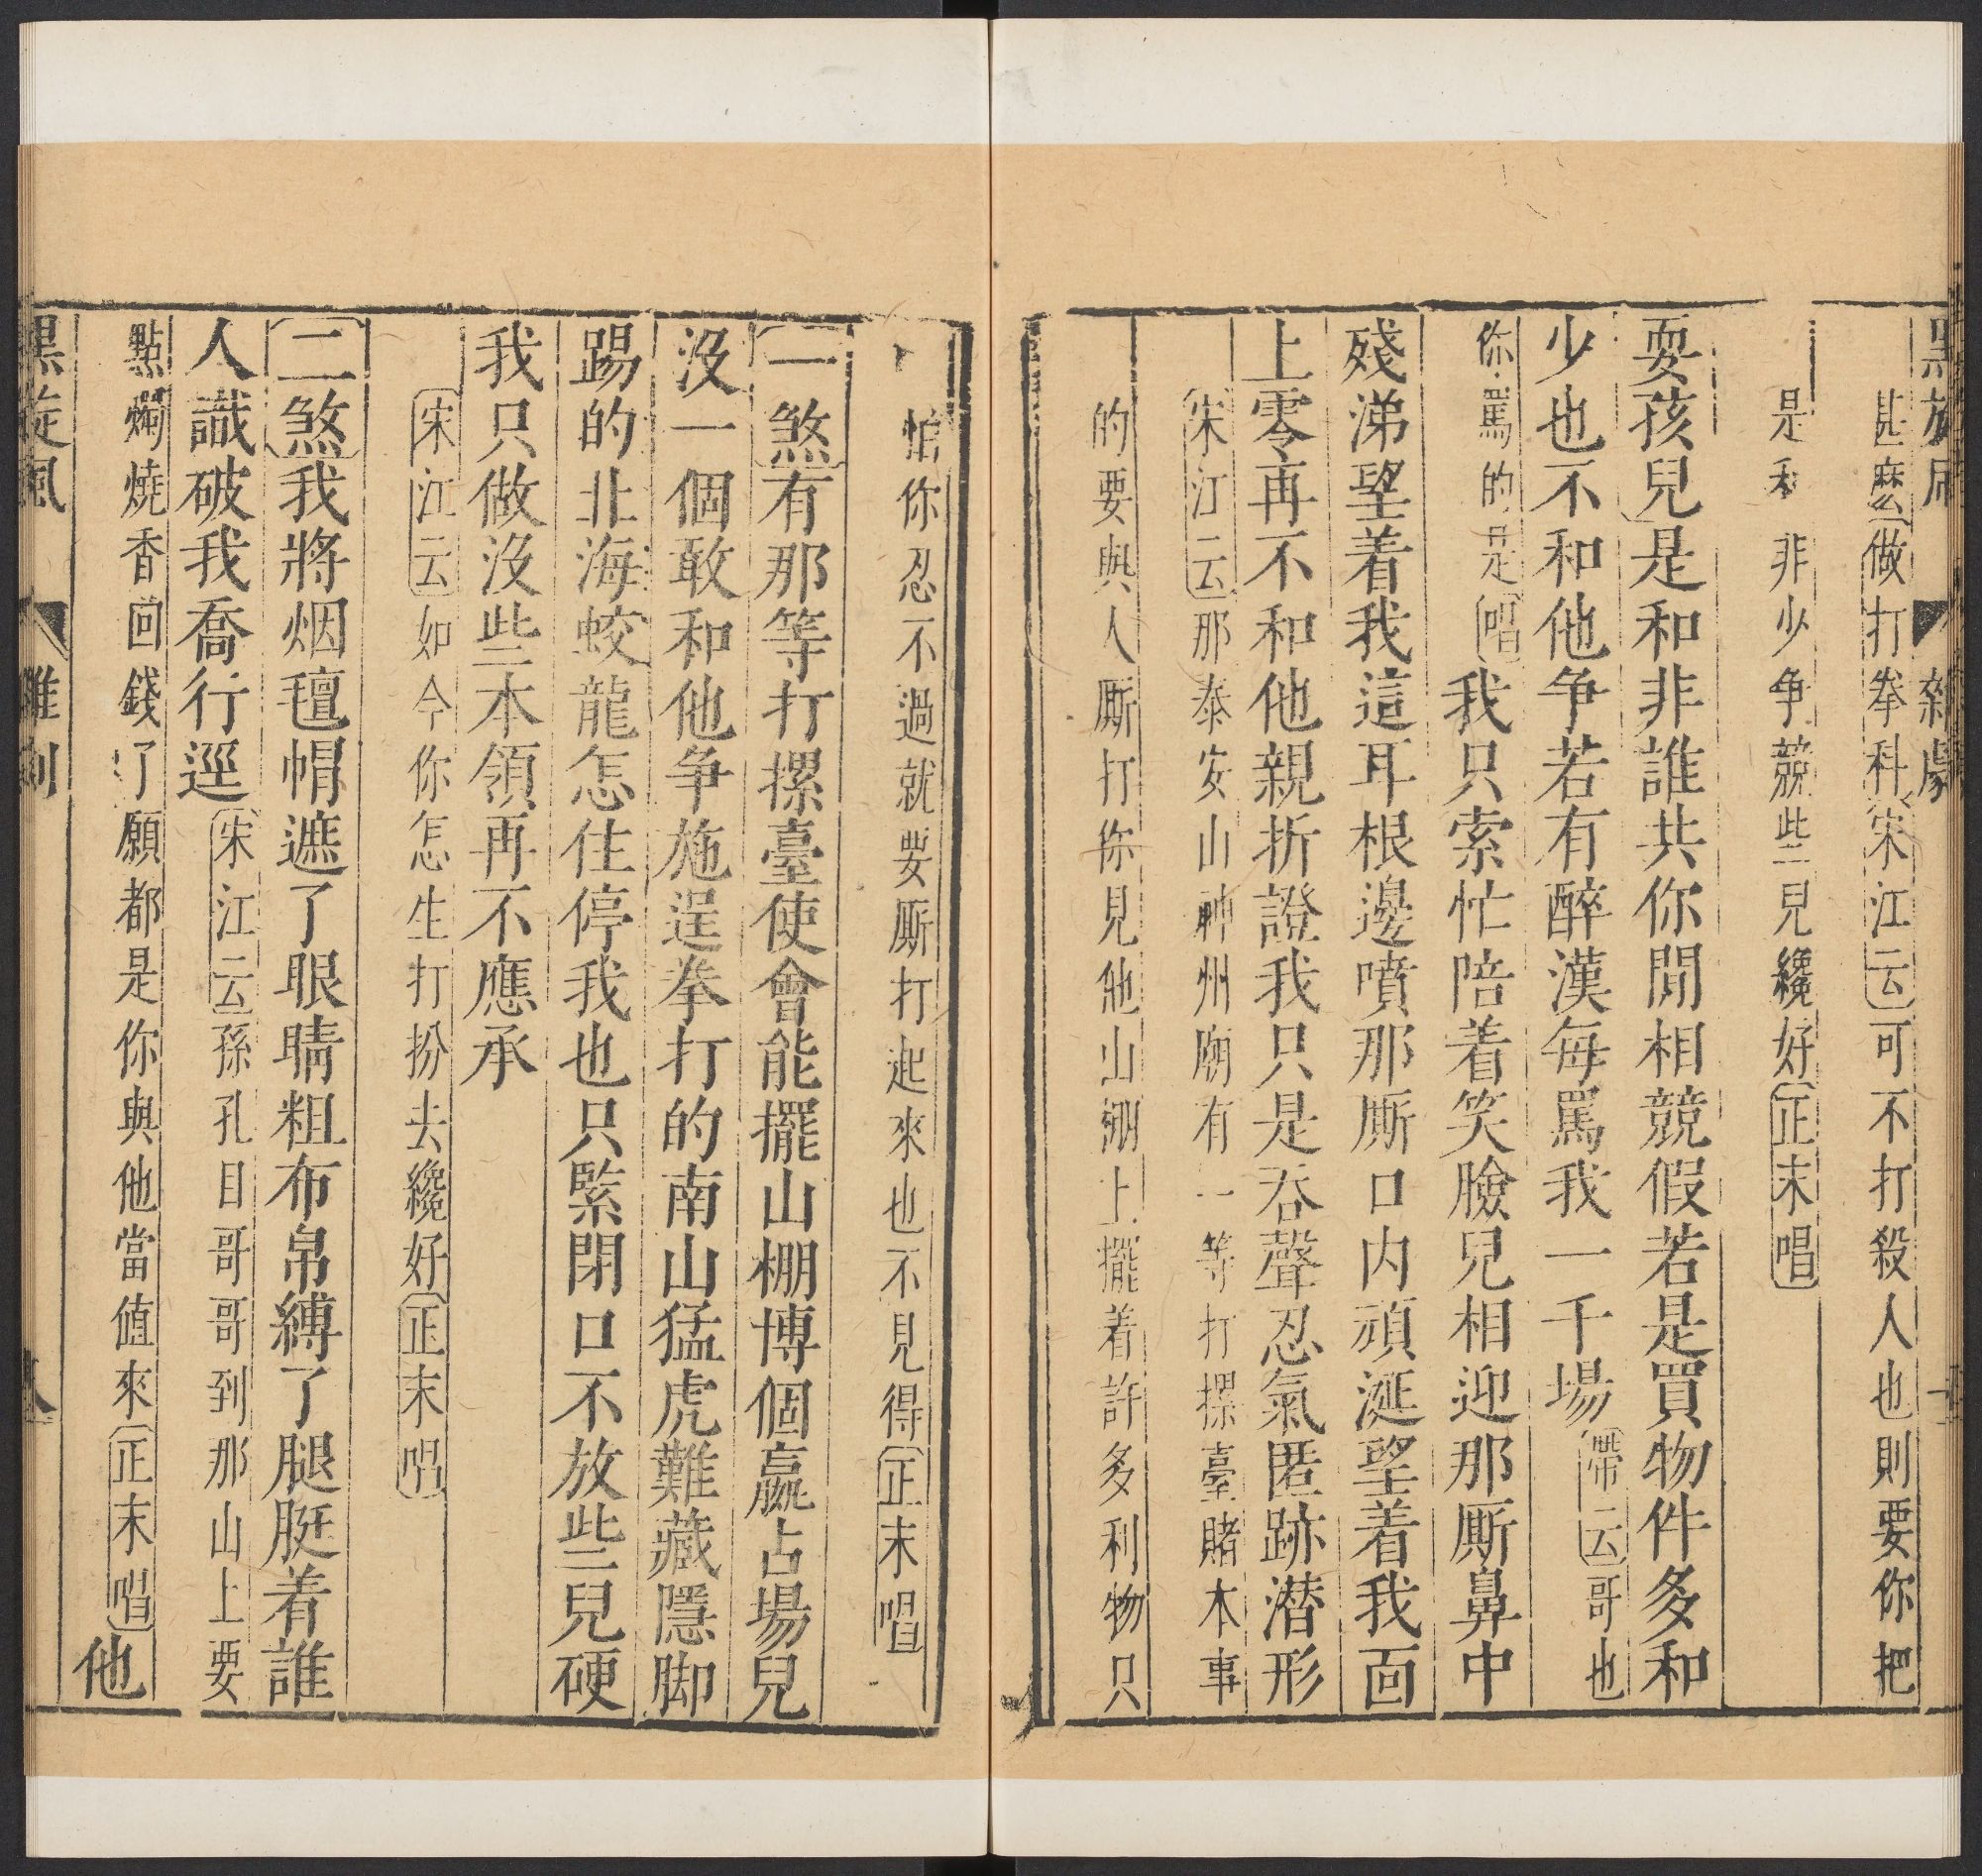 黑旋風 雜劇
甚麽做打拳科宋江云可不打殺人也則要你把
是和非少争競些兒纔好正末唱
耍孩兒是和非誰共你閒相競假若是買物件多和
少也不和他争若有醉漢每罵我一千場帶云哥也
你罵的是唱我只索忙陪着笑臉兒相迎那厮鼻中
殘涕望着我這耳根邊噴那厮口内頑涎望着我面
上零再不和他親折證我只是吞聲忍氣匿跡潜形
宋江云那泰安山神州廟有一等打摞臺賭本事
的要與人厮打你見他山棚上擺着許多利物只
怕你忍不過就要厮打起來也不見得正末唱
一煞有那等打摞臺使會能擺山棚博個嬴占場兒
没一個敢和他争施逞拳打的南山猛虎難藏隱脚
踢的北海蛟龍怎住停我也只緊閉口不放些兒硬
我只做没些本領再不應承
宋江云如今你怎生打扮去纔好正末唱
二煞我將烟氊帽遮了眼睛粗布帛縛了腿脡着誰
人識破我喬行逕宋江云孫孔目哥哥到那山上要
點燭燒香回錢了願都是你與他當值來正末唱他
黑旋風 雜劇 八